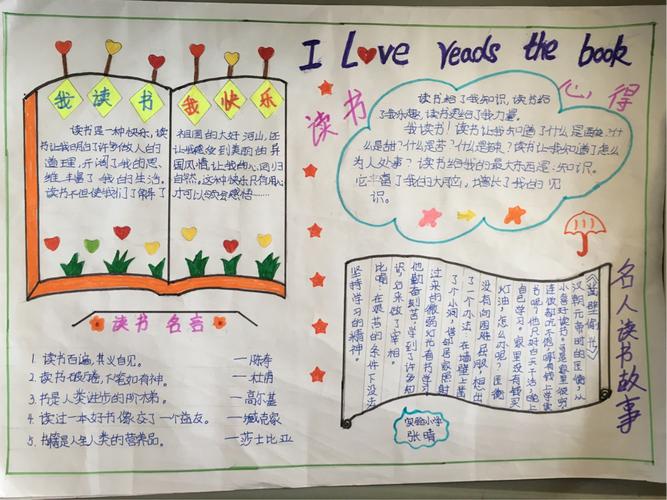 I Love reads the book
我读书 我快乐
读书是一种快乐,读
书让我明白了许多做人的
道理,开阔了我的思
维,丰富了我的生活。
读书不但使我们了解了
祖国的大好河山,还
让我感受到美丽的异
国风情,让我的心回归
自然。这种快乐只有用心
才可以感会感悟……
读书心得
读书给了我知识,读书给
了我乐趣,读书更给了我力量。
我读书!读书让我知道了什么是酸?什
么是甜?什么是苦?什么是辣?读书让我知道了怎么
为人处事?读书给我的最大东西是:知识。
它丰富了我的大脑,增长了我的见
识。
读书名言
1. 读书百遍,其义自见。 —陈寿
2. 读书破万卷,下笔如有神。 —杜甫
3. 书是人类进步的阶梯。 —高尔基
4. 读过一本好书,像交了一个益友。 —臧克家
5. 书籍是人类的营养品。 —莎士比亚
名人读书故事
《凿壁偷光》
汉朝元帝时的匡衡,从
小喜好读书。可是家里很穷,
连饭都吃不饱,哪有钱上学读
书呢?他只好白天干活,晚上
自己学习。家里没有钱买
灯油,怎么办呢?匡衡
没有向困难屈服,想出
了一个办法,在墙壁上凿
了个小洞,借邻居家照射
过来的微弱灯光看书学习。
他勤奋刻苦,学到了许多知
识,后来做了宰相。
比喻:在艰苦的条件下没法
坚持学习的精神。
实验小学
张晴